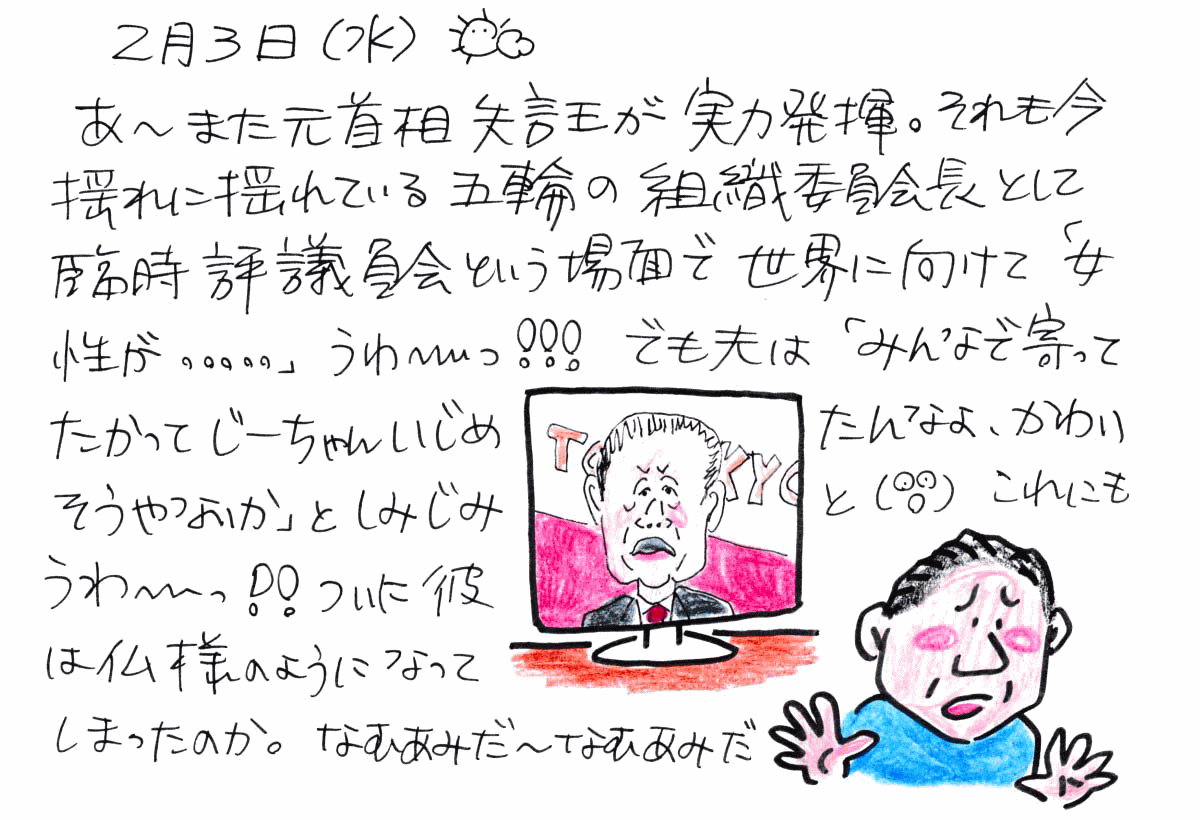 2月3日(水)
あ〜また元首相失言王が実力発揮。それも今
揺れに揺れている五輪の組織委員会長として
臨時評議員会という場面で世界に向けて「女
性が。。。。。」うわ〜〜っ!!! でも夫は「みんなで寄って
たかってじーちゃんいじめ たんなよ、かわい
そうやないか」としみじみ と(°°) これにも
うわ〜〜っ!! ついに彼
は仏様のようになって
しまったのか。なむあみだ〜なむあみだ
TO KYO